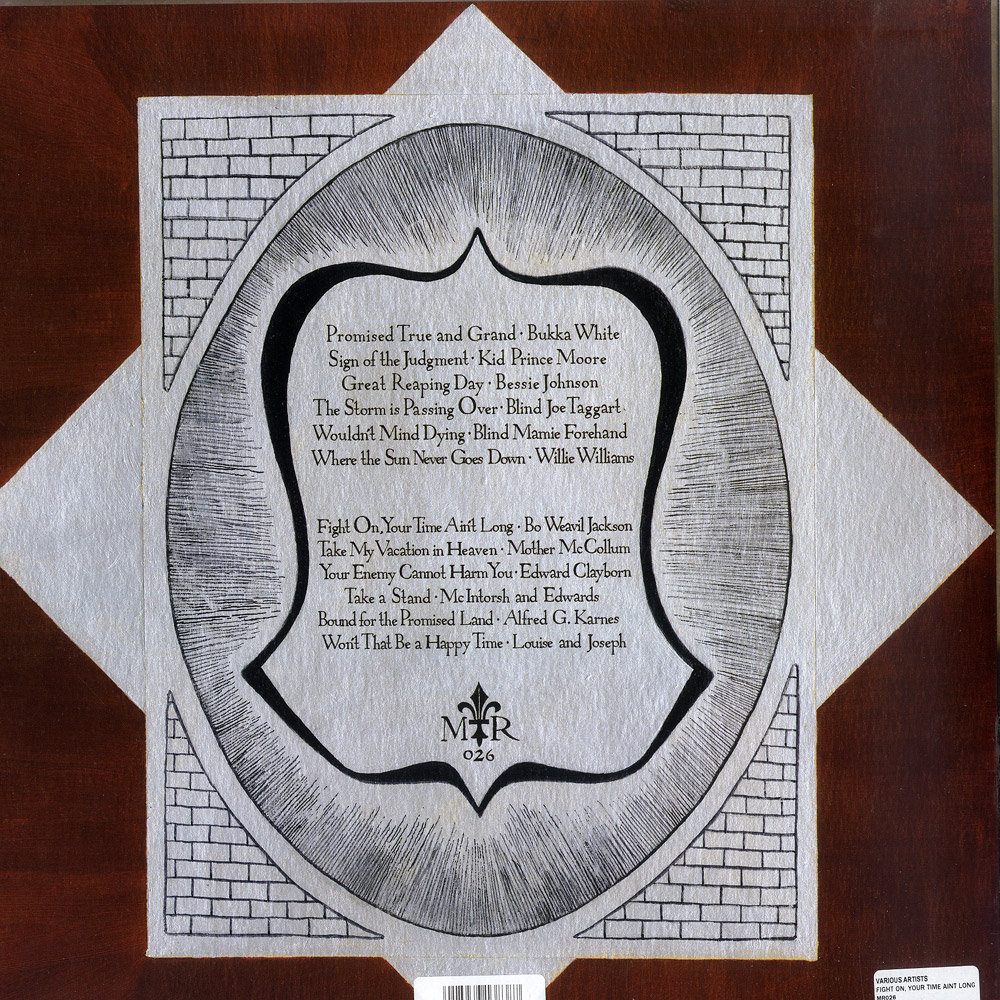 Promised True and Grand · Bukka White
Sign of the Judgment · Kid Prince Moore
Great Reaping Day · Bessie Johnson
The Storm is Passing Over · Blind Joe Taggart
Wouldn't Mind Dying · Blind Mamie Forehand
Where the Sun Never Goes Down · Willie Williams
Fight On, Your Time Ain't Long · Bo Weavil Jackson
Take My Vacation in Heaven · Mother McCollum
Your Enemy Cannot Harm You · Edward Clayborn
Take a Stand · McIntorsh and Edwards
Bound for the Promised Land · Alfred G. Karnes
Won't That Be a Happy Time · Louise and Joseph
M R
026
VARIOUS ARTISTS
FIGHT ON, YOUR TIME AINT LONG
MR026